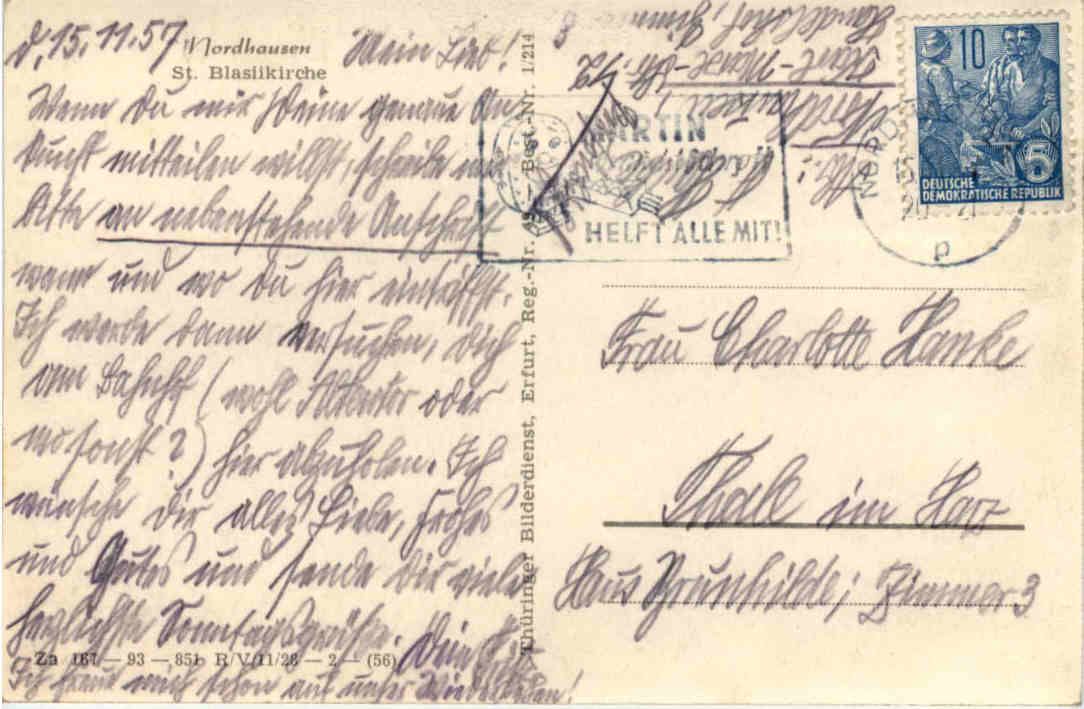 d. 15.11.57
Nordhausen
St. Blasiikirche
Mein Lieb!
Wenn Du mir Deine genaue An-
kunft mitteilen willst, schreibe mir
bitte an nebenstehende Anschrift
wann und wo Du hier eintriffst.
Ich werde dann versuchen, Dich
am Bahnhof (wohl Altentor oder
wo sonst?) hier abzuholen. Ich
wünsche Dir alles Liebe, Frohes
und Gutes und sende Dir viele
herzlichste Sonntagsgrüße. Dein
Za 167 — 93 — 851 R/V/11/28 — 2 — (56)
Ich freue mich schon auf unser Wiedersehen!
Thüringer Bilderdienst, Erfurt, Reg.-Nr. — Best.-Nr. 1/214
Nordhausen,
Karl-Marx-Str. 12
HELFT ALLE MIT!
NORD
10
DEUTSCHE
DEMOKRATISCHE REPUBLIK
Frau Charlotte Hanke
Thale im Harz
Haus Brunhilde; Zimmer 3